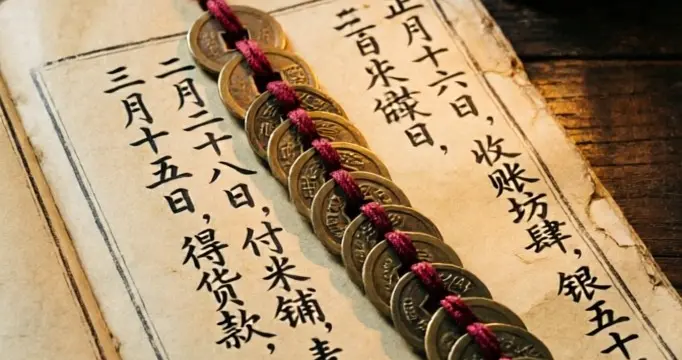 正月十六日，收账坊肆，银五十
百米日，
二月二十八日，付米铺，
三月十五日，得货款，